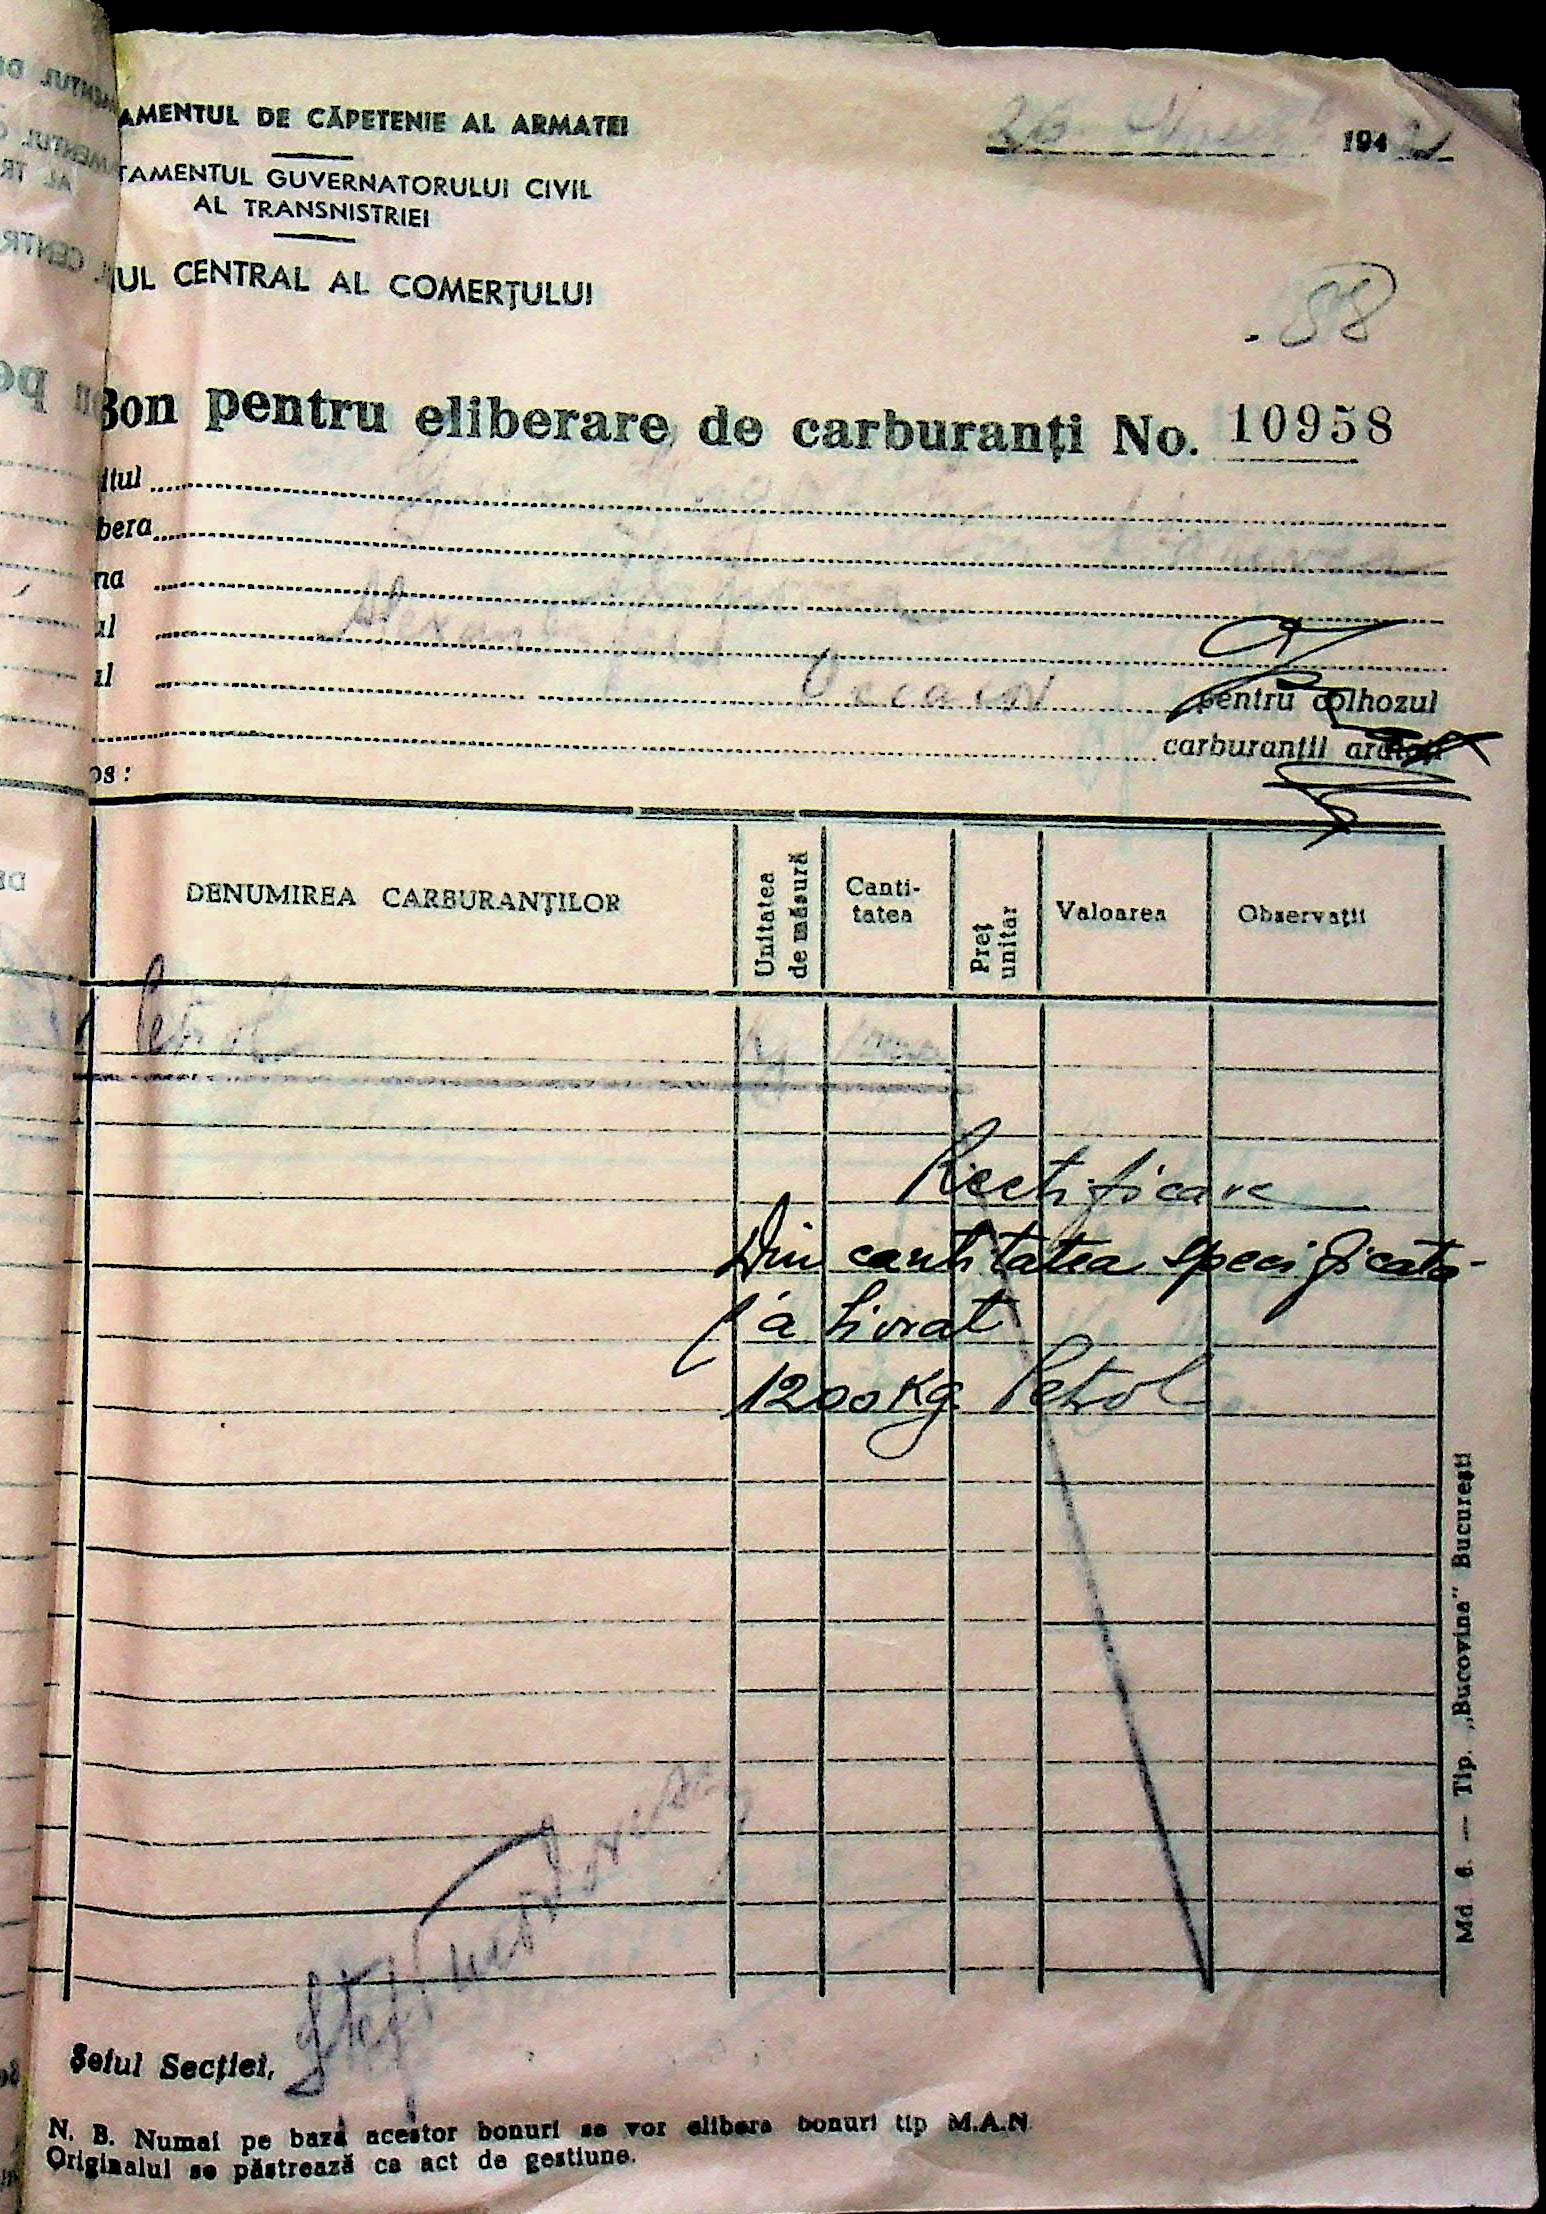 AMENTUL DE CĂPETENIE AL ARMATEI
194
TAMENTUL GUVERNATORULUI CIVIL
AL TRANSNISTRIEI
IUL CENTRAL AL COMERȚULUI
58
Bon pentru eliberare de carburanți No. 10958
itul
bera
na
al
al pentru colhozul
carburanții arătați
os:
DENUMIREA CARBURANȚILOR
Unitatea de măsură
Canti-
tatea
Preț unitar
Valoarea
Observații
Petrol Kg
Rectificare
Din cantitatea specificata
s'a livrat
1200 Kg. Petrol
Șeful Secției,
N. B. Numai pe baza acestor bonuri se vor elibera bonuri tip M.A.N
Originalul se păstrează ca act de gestiune.
Md. 6. — Tip. „Bucovina" București